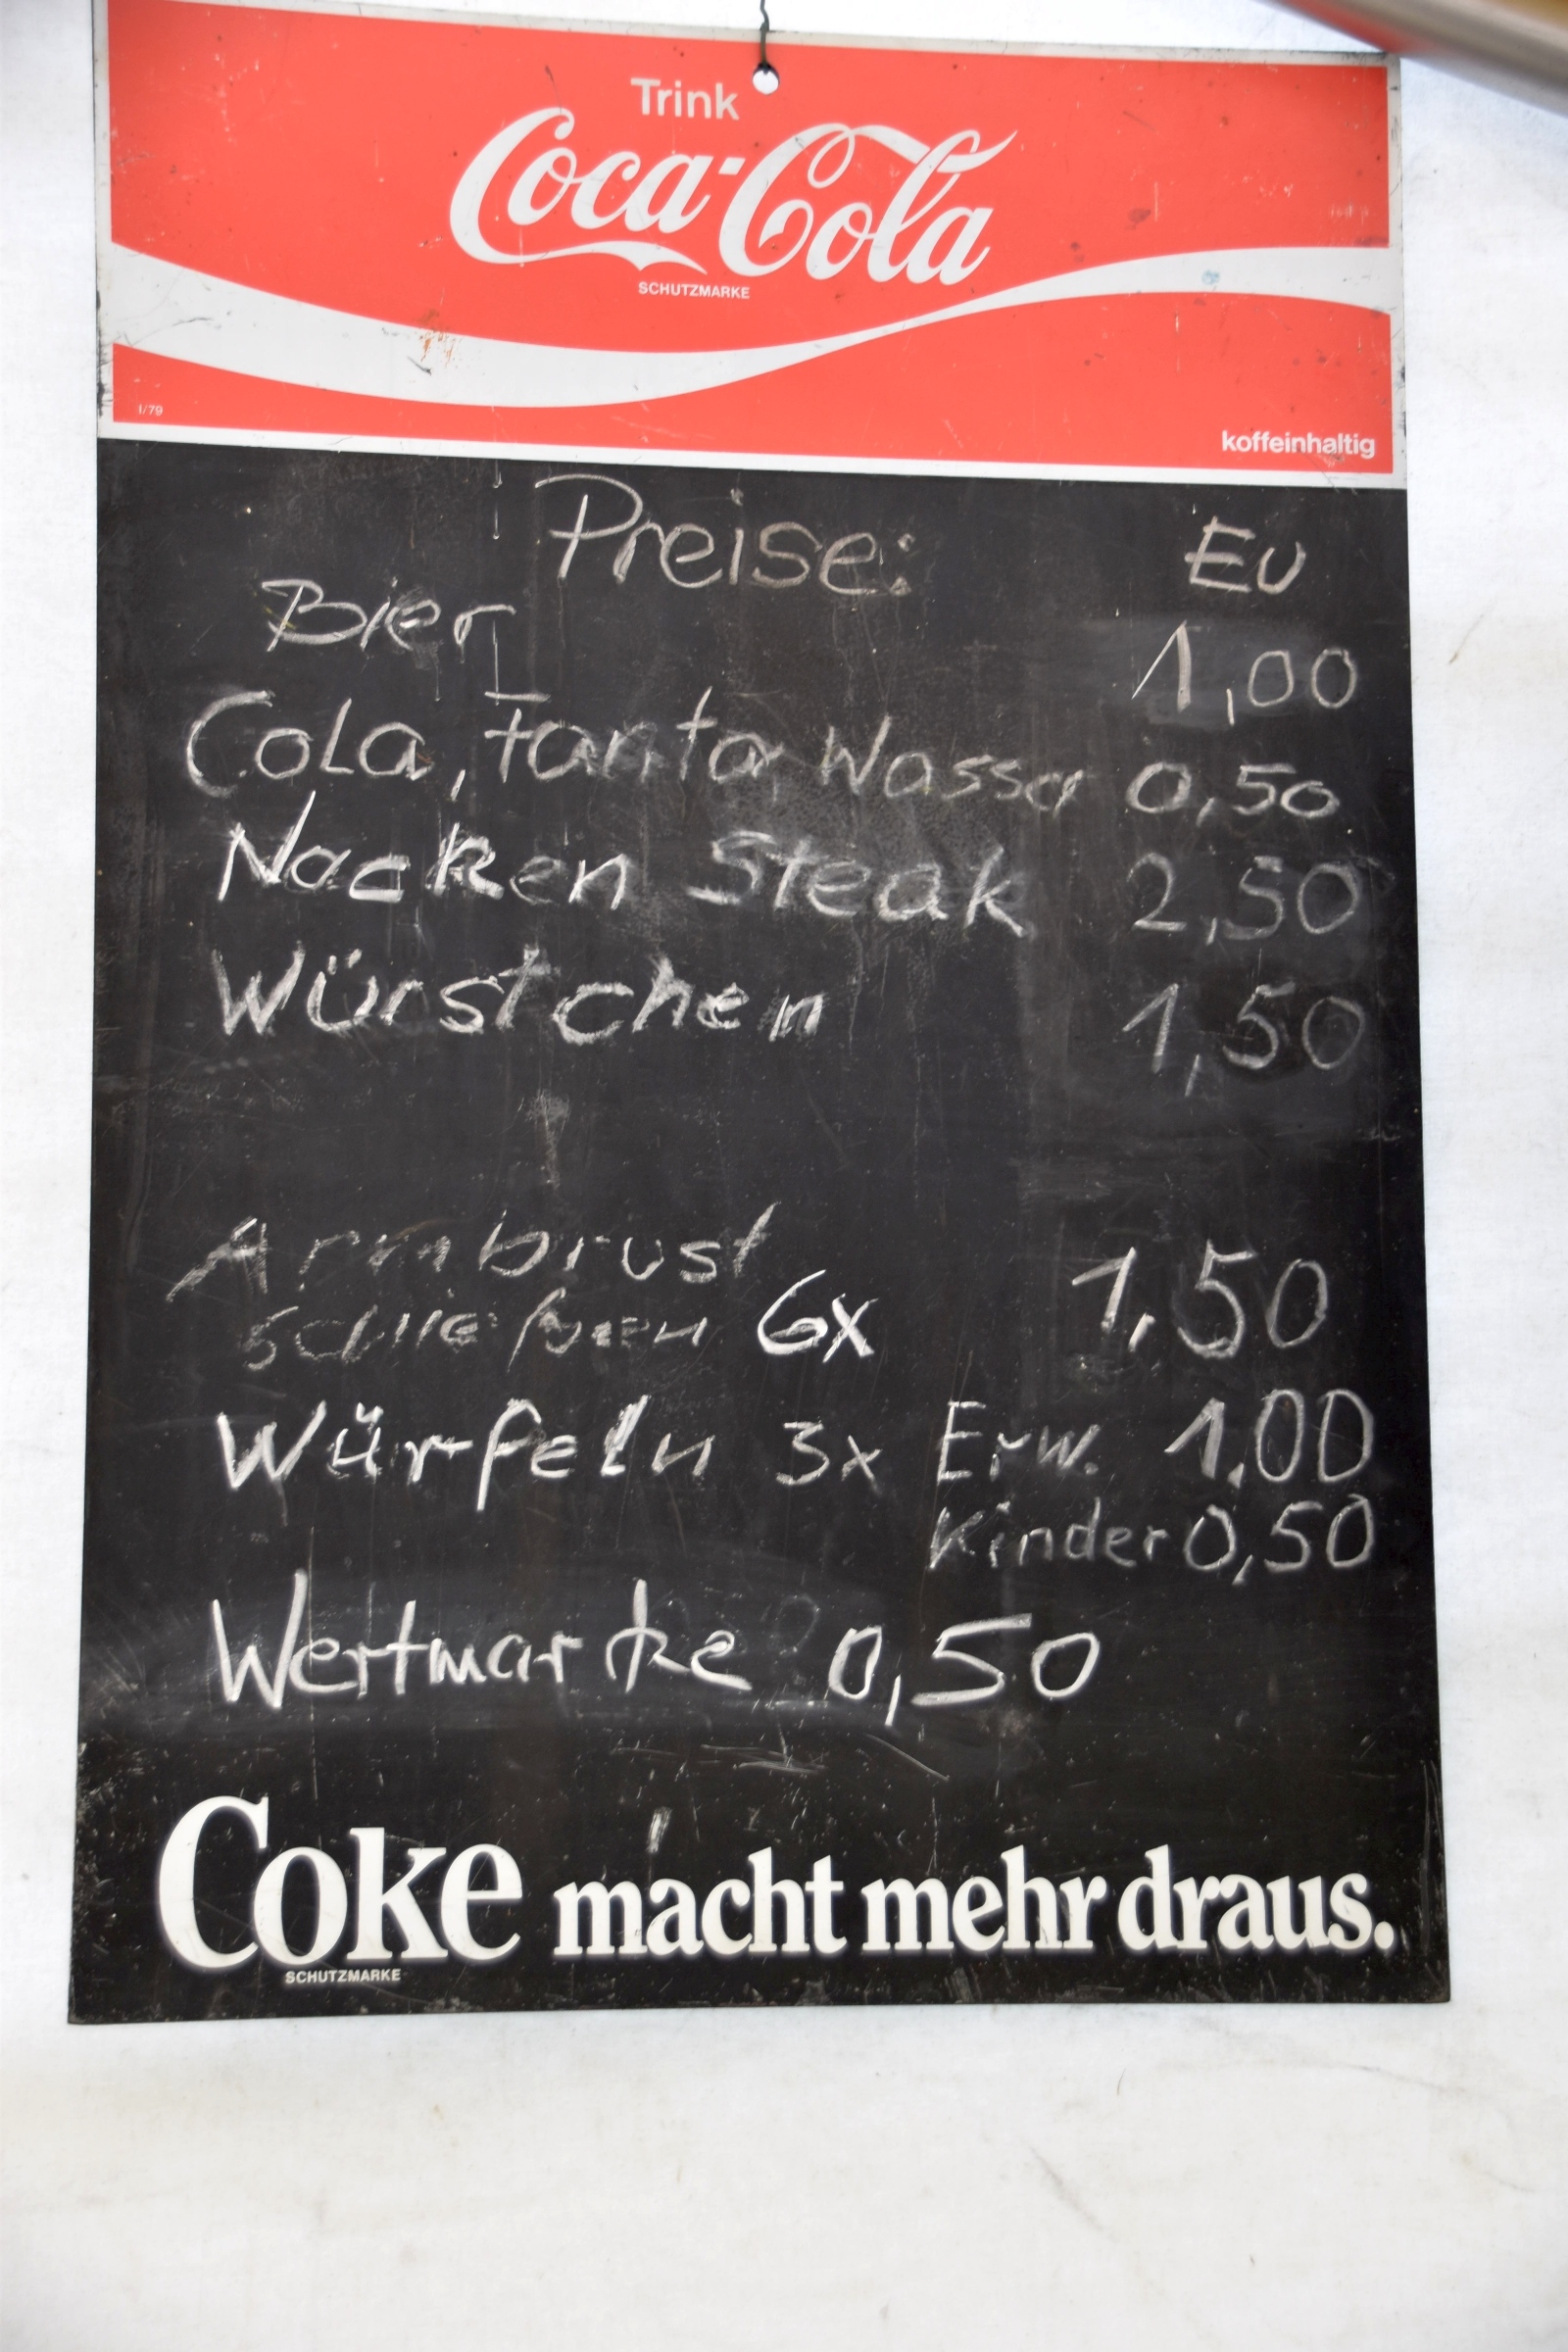 Trink
Coca-Cola
SCHUTZMARKE
I/79
koffeinhaltig
Preise: EU
Bier 1,00
Cola, Fanta, Wasser 0,50
Nacken Steak 2,50
Würstchen 1,50
Armbrust
schießen 6x 1,50
Würfeln 3x Erw. 1.00
Kinder 0,50
Wertmarke 0,50
Coke macht mehr draus.
SCHUTZMARKE